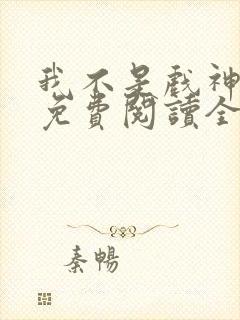 我不是戲神
免費閱讀全
秦暢